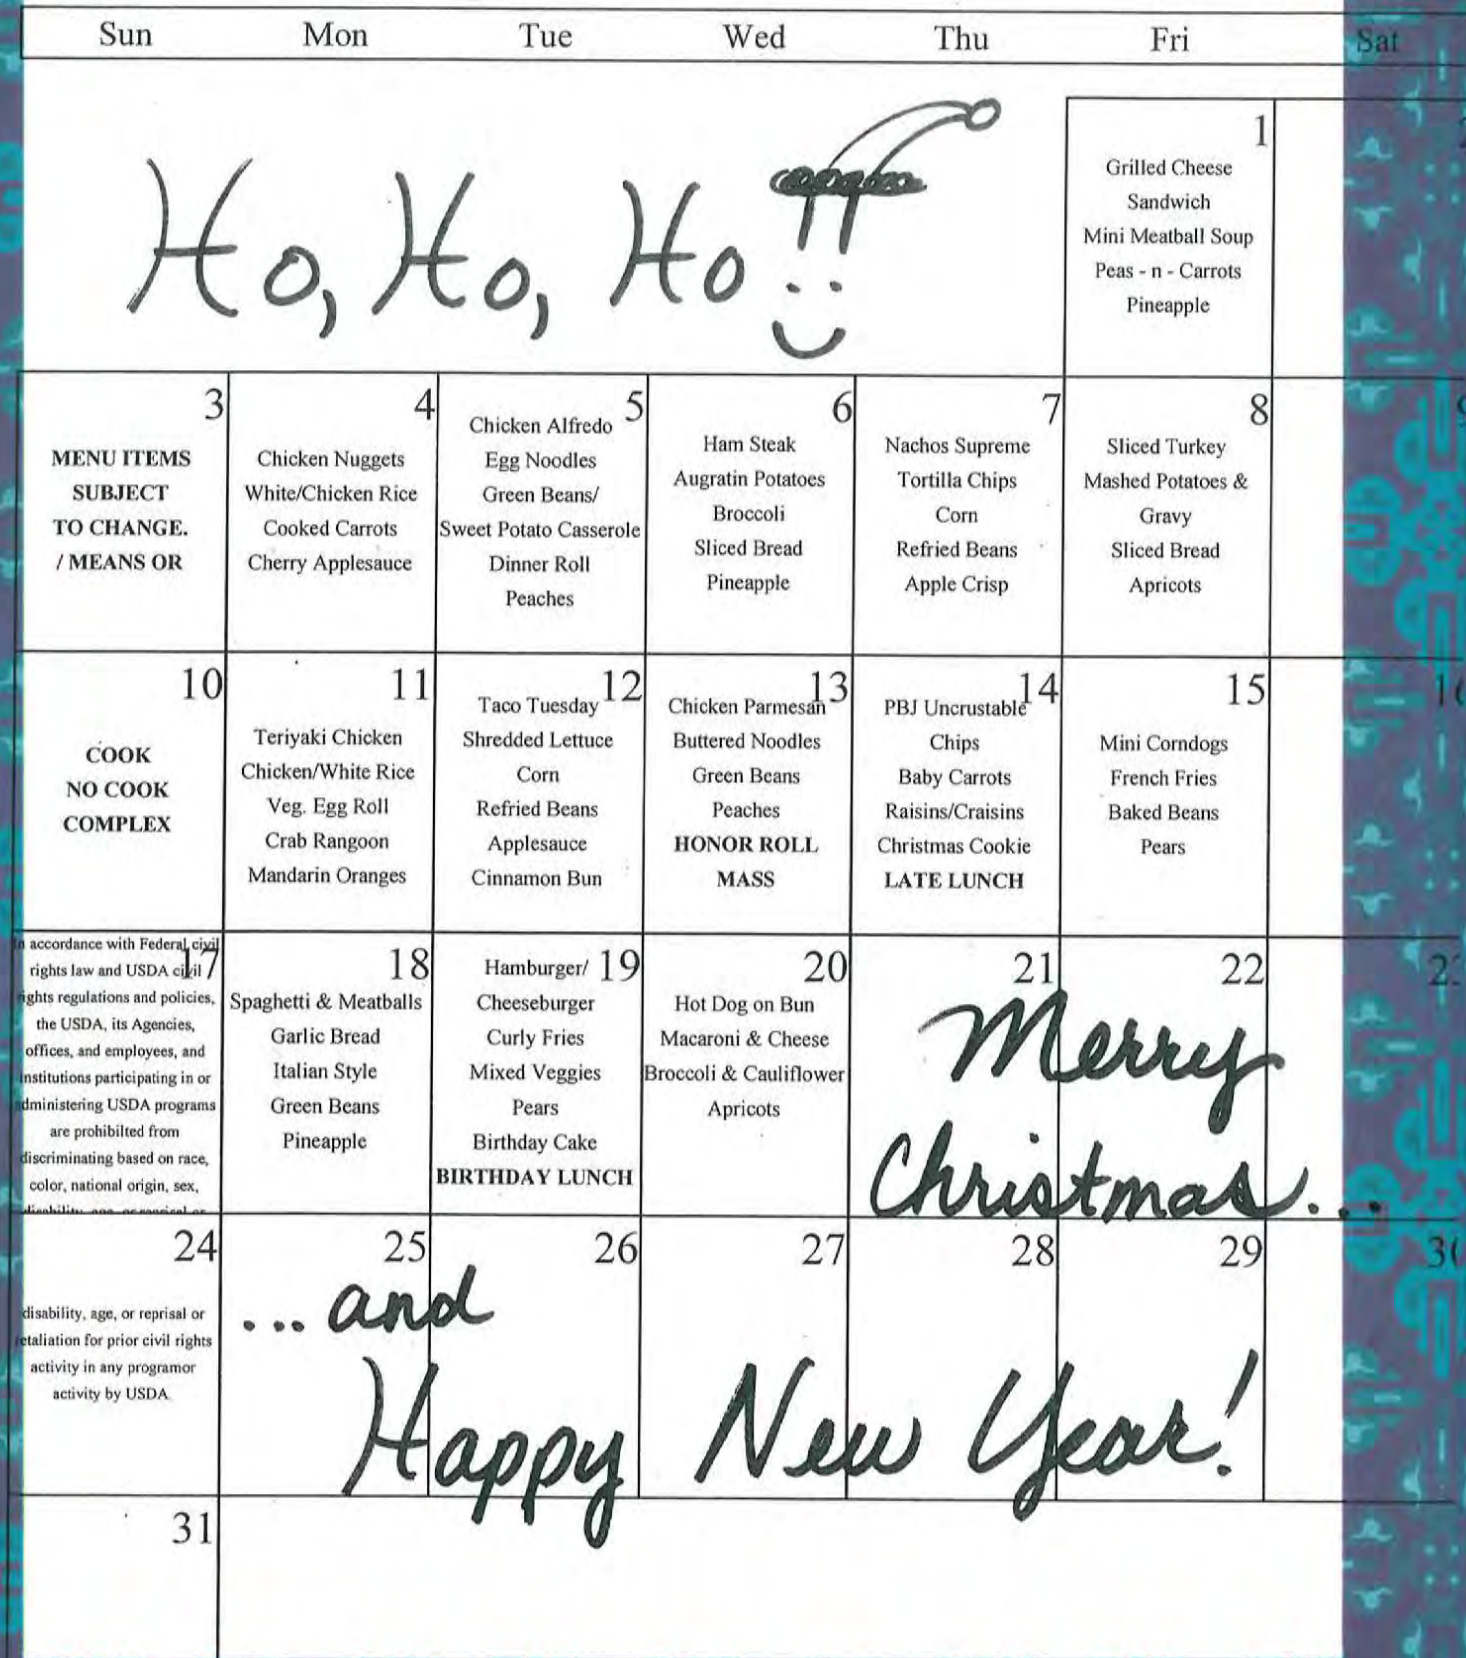 Sun Mon Tue Wed Thu Fri Sat
Ho, Ho, Ho !!
1
Grilled Cheese
Sandwich
Mini Meatball Soup
Peas - n - Carrots
Pineapple
3
MENU ITEMS
SUBJECT
TO CHANGE.
/ MEANS OR
4
Chicken Nuggets
White/Chicken Rice
Cooked Carrots
Cherry Applesauce
5
Chicken Alfredo
Egg Noodles
Green Beans/
Sweet Potato Casserole
Dinner Roll
Peaches
6
Ham Steak
Augratin Potatoes
Broccoli
Sliced Bread
Pineapple
7
Nachos Supreme
Tortilla Chips
Corn
Refried Beans
Apple Crisp
8
Sliced Turkey
Mashed Potatoes &
Gravy
Sliced Bread
Apricots
9
10
COOK
NO COOK
COMPLEX
11
Teriyaki Chicken
Chicken/White Rice
Veg. Egg Roll
Crab Rangoon
Mandarin Oranges
12
Taco Tuesday
Shredded Lettuce
Corn
Refried Beans
Applesauce
Cinnamon Bun
13
Chicken Parmesan
Buttered Noodles
Green Beans
Peaches
HONOR ROLL
MASS
14
PBJ Uncrustable
Chips
Baby Carrots
Raisins/Craisins
Christmas Cookie
LATE LUNCH
15
Mini Corndogs
French Fries
Baked Beans
Pears
16
17
accordance with Federal civil
rights law and USDA civil
rights regulations and policies,
the USDA, its Agencies,
offices, and employees, and
institutions participating in or
administering USDA programs
are prohibilted from
discriminating based on race,
color, national origin, sex,
disability, age, or reprisal or
18
Spaghetti & Meatballs
Garlic Bread
Italian Style
Green Beans
Pineapple
19
Hamburger/
Cheeseburger
Curly Fries
Mixed Veggies
Pears
Birthday Cake
BIRTHDAY LUNCH
20
Hot Dog on Bun
Macaroni & Cheese
Broccoli & Cauliflower
Apricots
21
22
23
Merry
Christmas...
24
disability, age, or reprisal or
retaliation for prior civil rights
activity in any programor
activity by USDA
25
26
27
28
29
30
...and
Happy New Year!
31